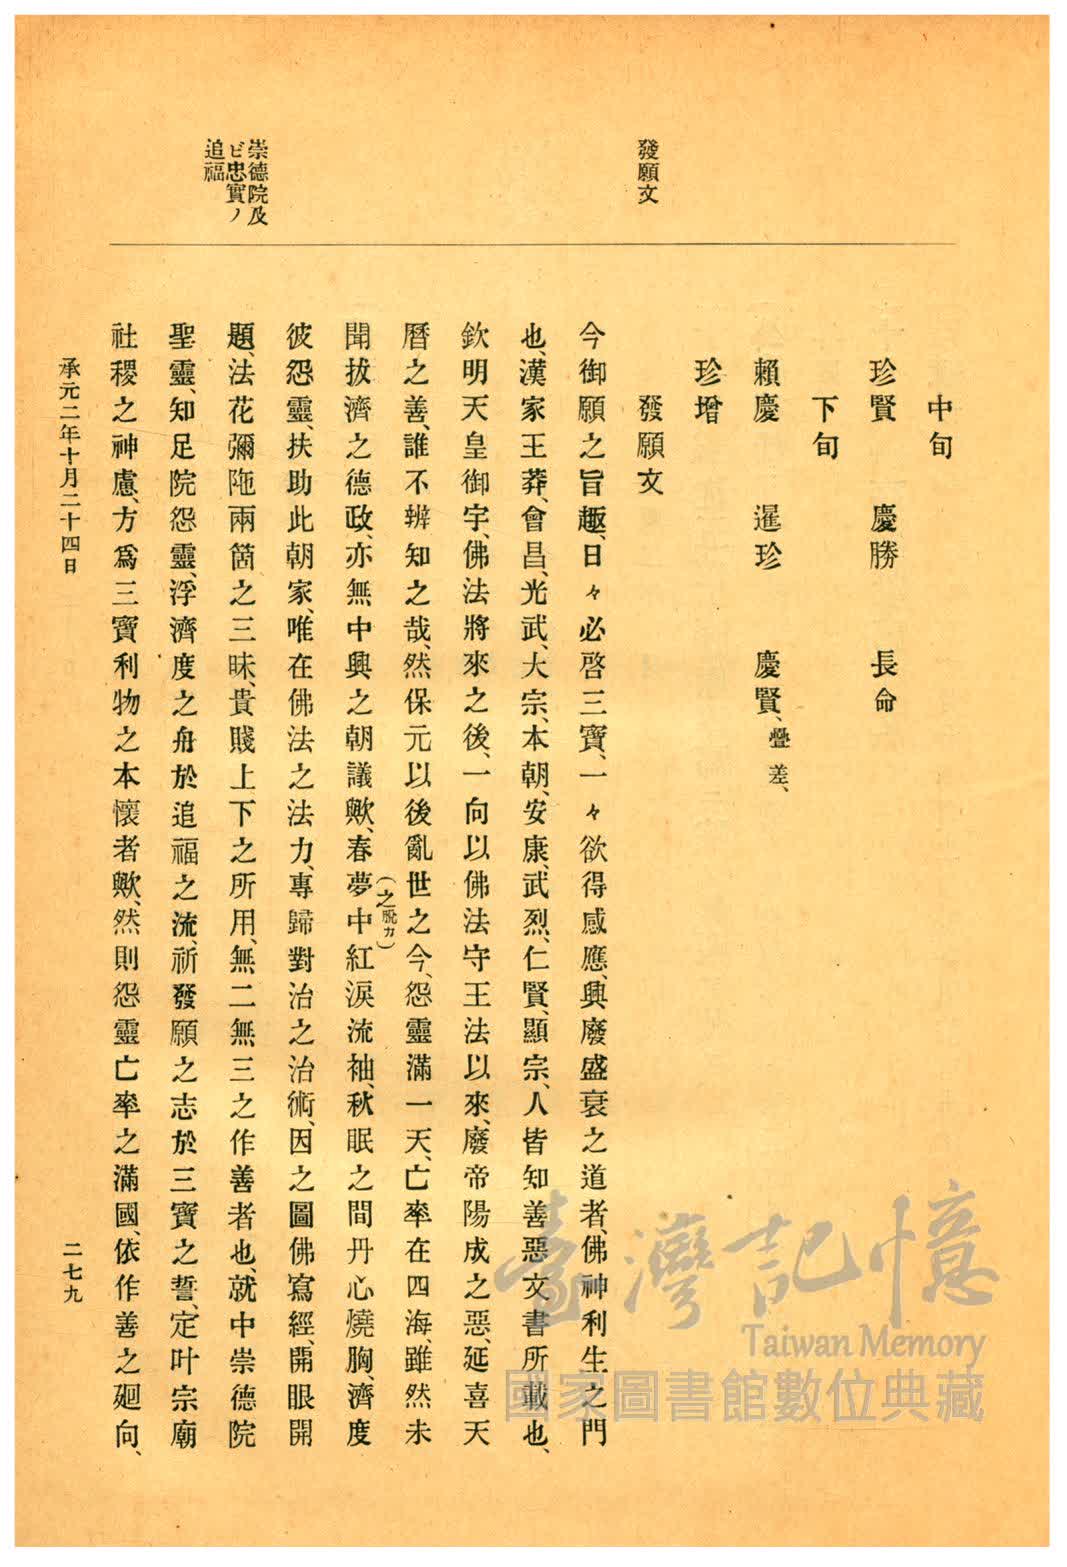 發願文
崇德院及
ビ忠實ノ
追福
中旬
珍賢　慶勝　長命
下旬
賴慶　暹珍　慶賢、疊差、
珍增
發願文
今御願之旨趣、日々必啓三寶、一々欲得感應、興廢盛衰之道者、佛神利生之門
也、漢家王莽、會昌、光武、大宗、本朝、安康、武烈、仁賢、顯宗、人皆知善惡文書所載也、
欽明天皇御宇、佛法將來之後、一向以佛法守王法以來、廢帝陽成之惡、延喜天
曆之善、誰不辨知之哉、然保元以後亂世之今、怨靈滿一天、亡卒在四海、雖然未
聞拔濟之德政、亦無中興之朝議歟、春夢中紅淚流袖、秋眠之間丹心燒胸、濟度
（之脫カ）
彼怨靈、扶助此朝家、唯在佛法之法力、專歸對治之治術、因之圖佛寫經、開眼開
題、法花彌陁兩箇之三昧、貴賤上下之所用、無二無三之作善者也、就中崇德院
聖靈、知足院怨靈、浮濟度之舟於追福之流、祈發願之志於三寶之誓、定叶宗廟
社稷之神慮、方爲三寶利物之本懷者歟、然則怨靈亡卒之滿國、依作善之廻向、
承元二年十月二十四日
二七九
臺灣記憶
Taiwan Memory
國家圖書館數位典藏